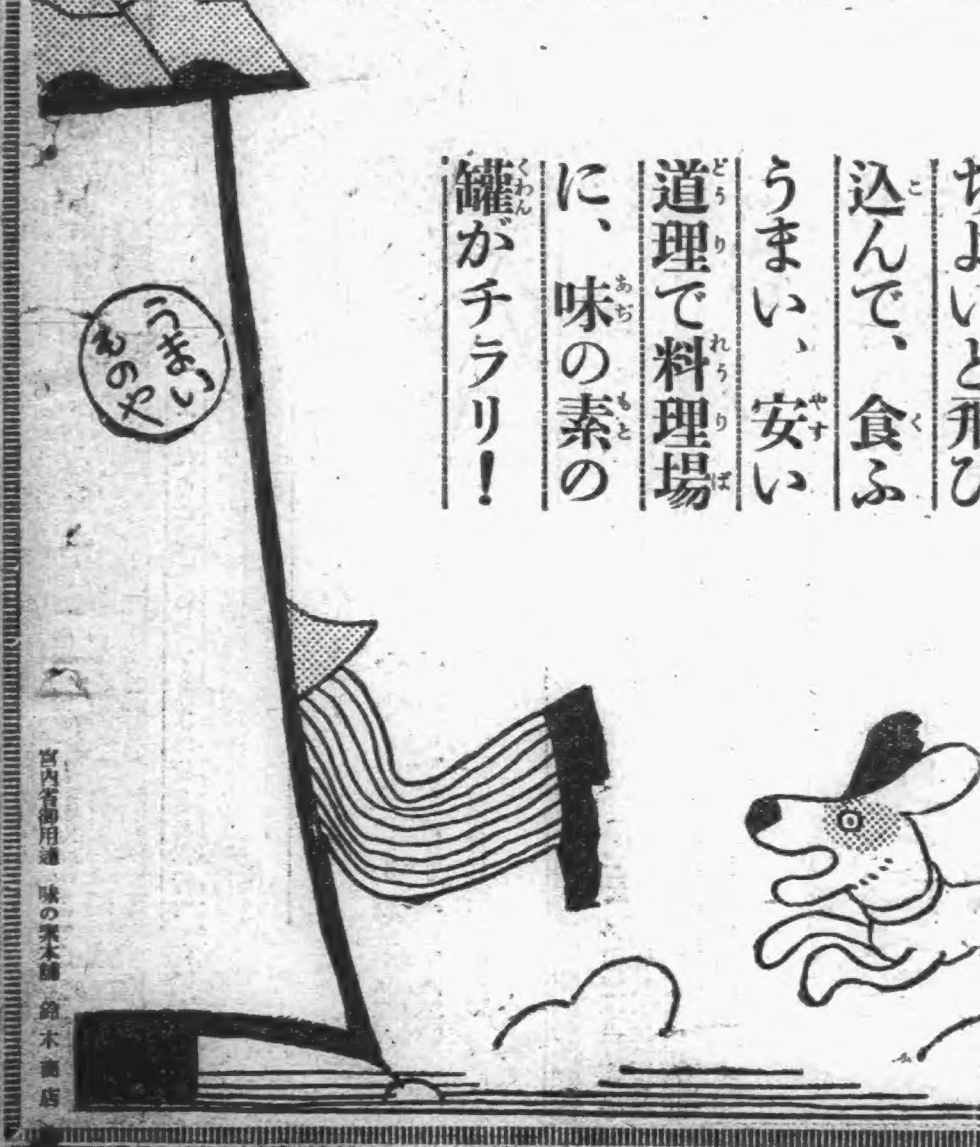 ちよいと飛び
込んで、食ふ
うまい、安い
道理で料理場
に、味の素の
罐がチラリ!
うまい
ものや
宮内省御用達 味の素本舗 鈴木商店